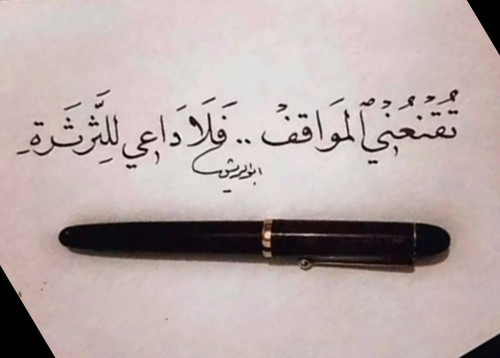 تُقنعُني المَواقفُ .. فَلَا دَاعي للثَّرثَرة
ابو الريش